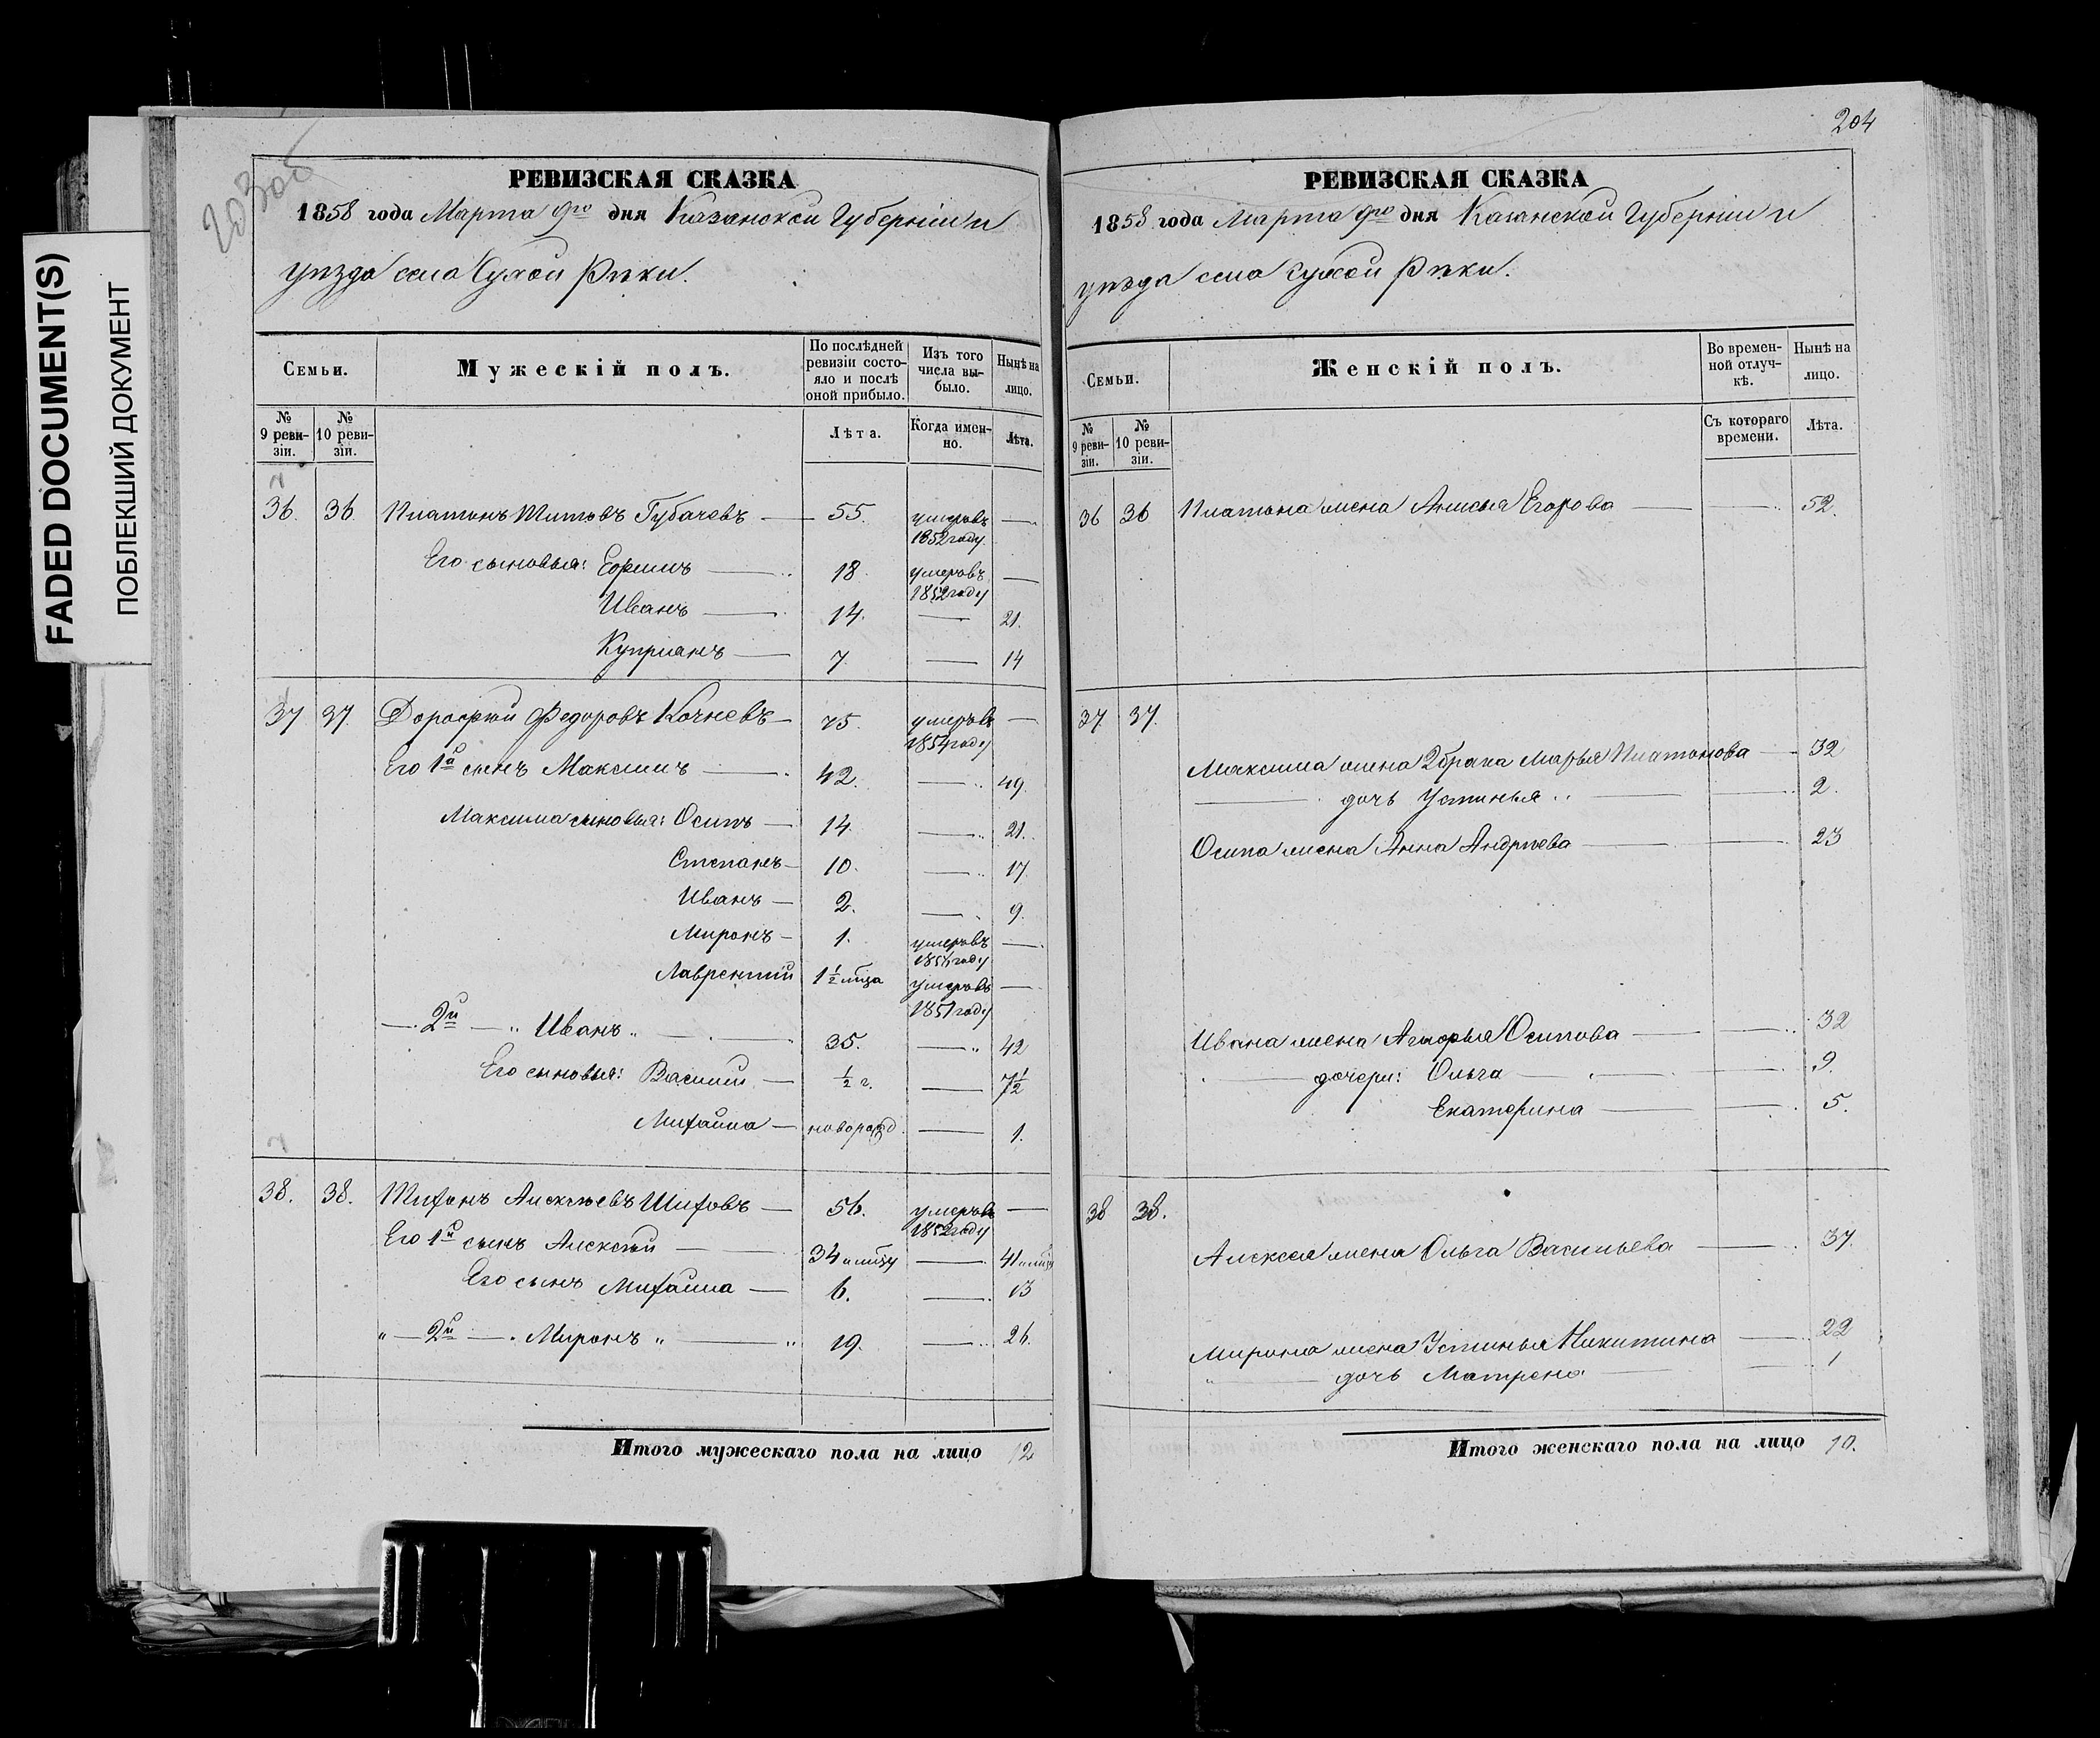 FADED DOCUMENT(S)
ПОБЛЕКШИЙ ДОКУМЕНТ
203об
РЕВИЗСКАЯ СКАЗКА
1858 года Марта 9го дня Казанской Губерніи и
уѣзда села Сухой Рѣки.
Семьи.
Мужескій полъ.
По послѣдней ревизіи состояло и послѣ оной прибыло.
Изъ того числа выбыло.
Нынѣ на лицо.
№ 9 ревизіи.
№ 10 ревизіи.
Лѣта.
Когда именно.
Лѣта.
36. 36 Платонъ Титовъ Губачевъ — 55. умеръ въ 1852 году —
Его сыновья: Ефимъ — 18. умеръ въ 1852 году —
Иванъ — 14. — 21.
Купріанъ — 7 — 14
37 37. Дорофей Федоровъ Кочневъ — 75. умеръ въ 1854 году —
Его 1й сынъ Максимъ — 42. — 49.
Максима сыновья: Осипъ — 14. — 21.
Степанъ — 10. — 17.
Иванъ — 2. — 9.
Миронъ — 1. умеръ въ году —
Лаврентій 1½ мѣсца умеръ въ 1851 году —
— 2й — " Иванъ " — 35. — 42
Его сыновья: Василій — ½ г. — 7½
Михайла — новорожд. — 1.
38. 38. Тихонъ Алексѣевъ — 56. умеръ въ 1852 году —
Его 1й сынъ Алексѣй — 34 —. 41
Его сынъ Михайла — 6. — 13
" — 2й — . Миронъ " — " 19. — 26.
Итого мужескаго пола на лицо 12
204
РЕВИЗСКАЯ СКАЗКА
1858 года Марта 9го дня Казанской Губерніи и
уѣзда села Сухой Рѣки.
Семьи.
Женскій полъ.
Во временной отлучкѣ.
Нынѣ на лицо.
№ 9 ревизіи.
№ 10 ревизіи.
Съ котораго времени.
Лѣта.
36 36 Платона жена Анисья Егорова — — 52.
37. 37.
Максима жена 2 брака Марья Платонова — 32
— дочь Устинья — — 2.
Осипа жена Анна Андрѣева — — 23
Ивана жена Осипова — — 32
— дочери: Ольга — — 9.
Екатерина — — 5.
38 38.
Алексея жена Ольга Васильева — — 37.
Мирона жена Устинья Никитина — 22
" — дочь Матрена — — 1
Итого женскаго пола на лицо 10.